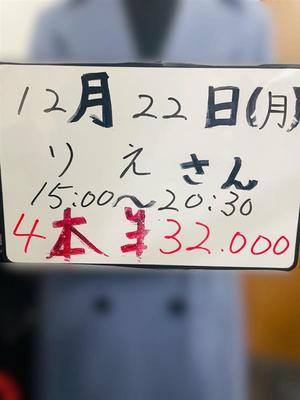 12月22日(月)
りえさん
15:00〜20:30
4本 ¥32.000